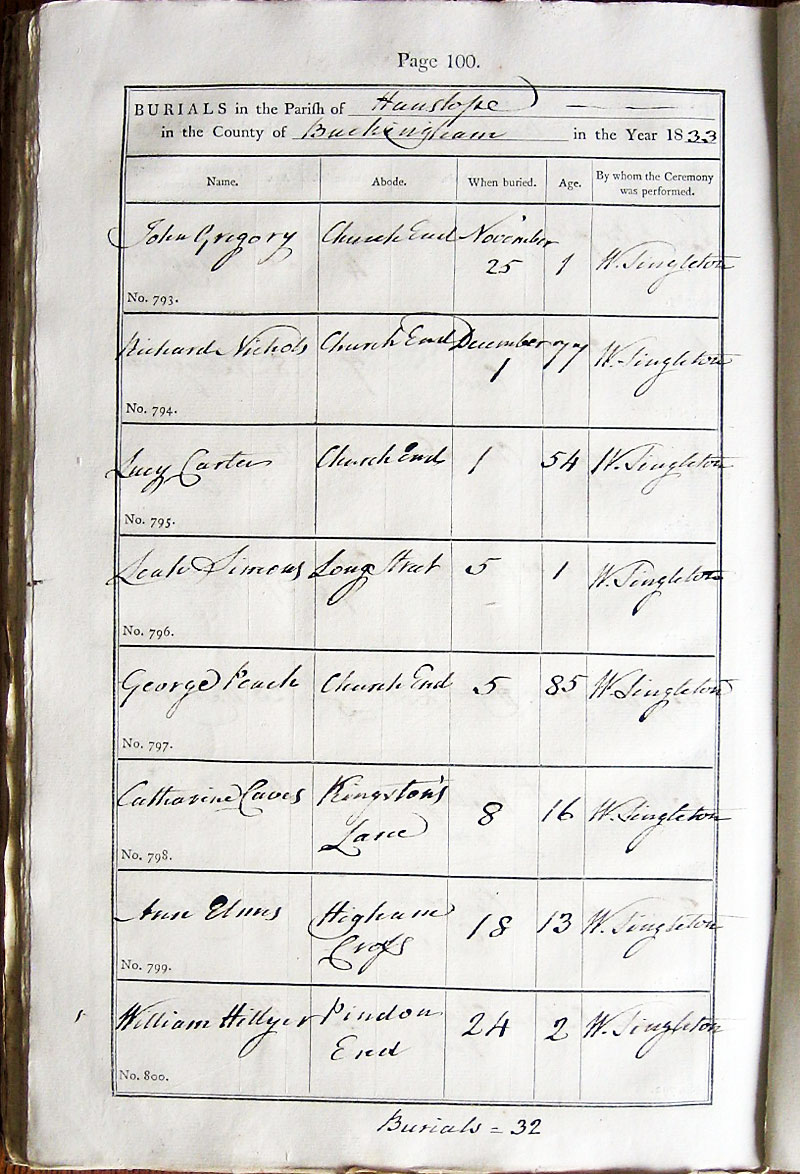 Page 100.
BURIALS in the Parish of Hanslope
in the County of Buckingham in the Year 1833
Name. Abode. When buried. Age. By whom the Ceremony was performed.
John Gregory Church End November
25 1 W. Singleton
No. 793.
Richard Nichols Church End December 77 W. Singleton
1
No. 794.
Lucy Carter Church End 1 54 W. Singleton
No. 795.
Leah Simons Long Street 5 1 W. Singleton
No. 796.
George Peach Church End 5 85 W. Singleton
No. 797.
Catharine Caves Kingston's
Lane 8 16 W. Singleton
No. 798.
Ann Elmes Higham
Cross 18 13 W. Singleton
No. 799.
William Hillyer Pindon
End 24 2 W. Singleton
No. 800.
Burials = 32